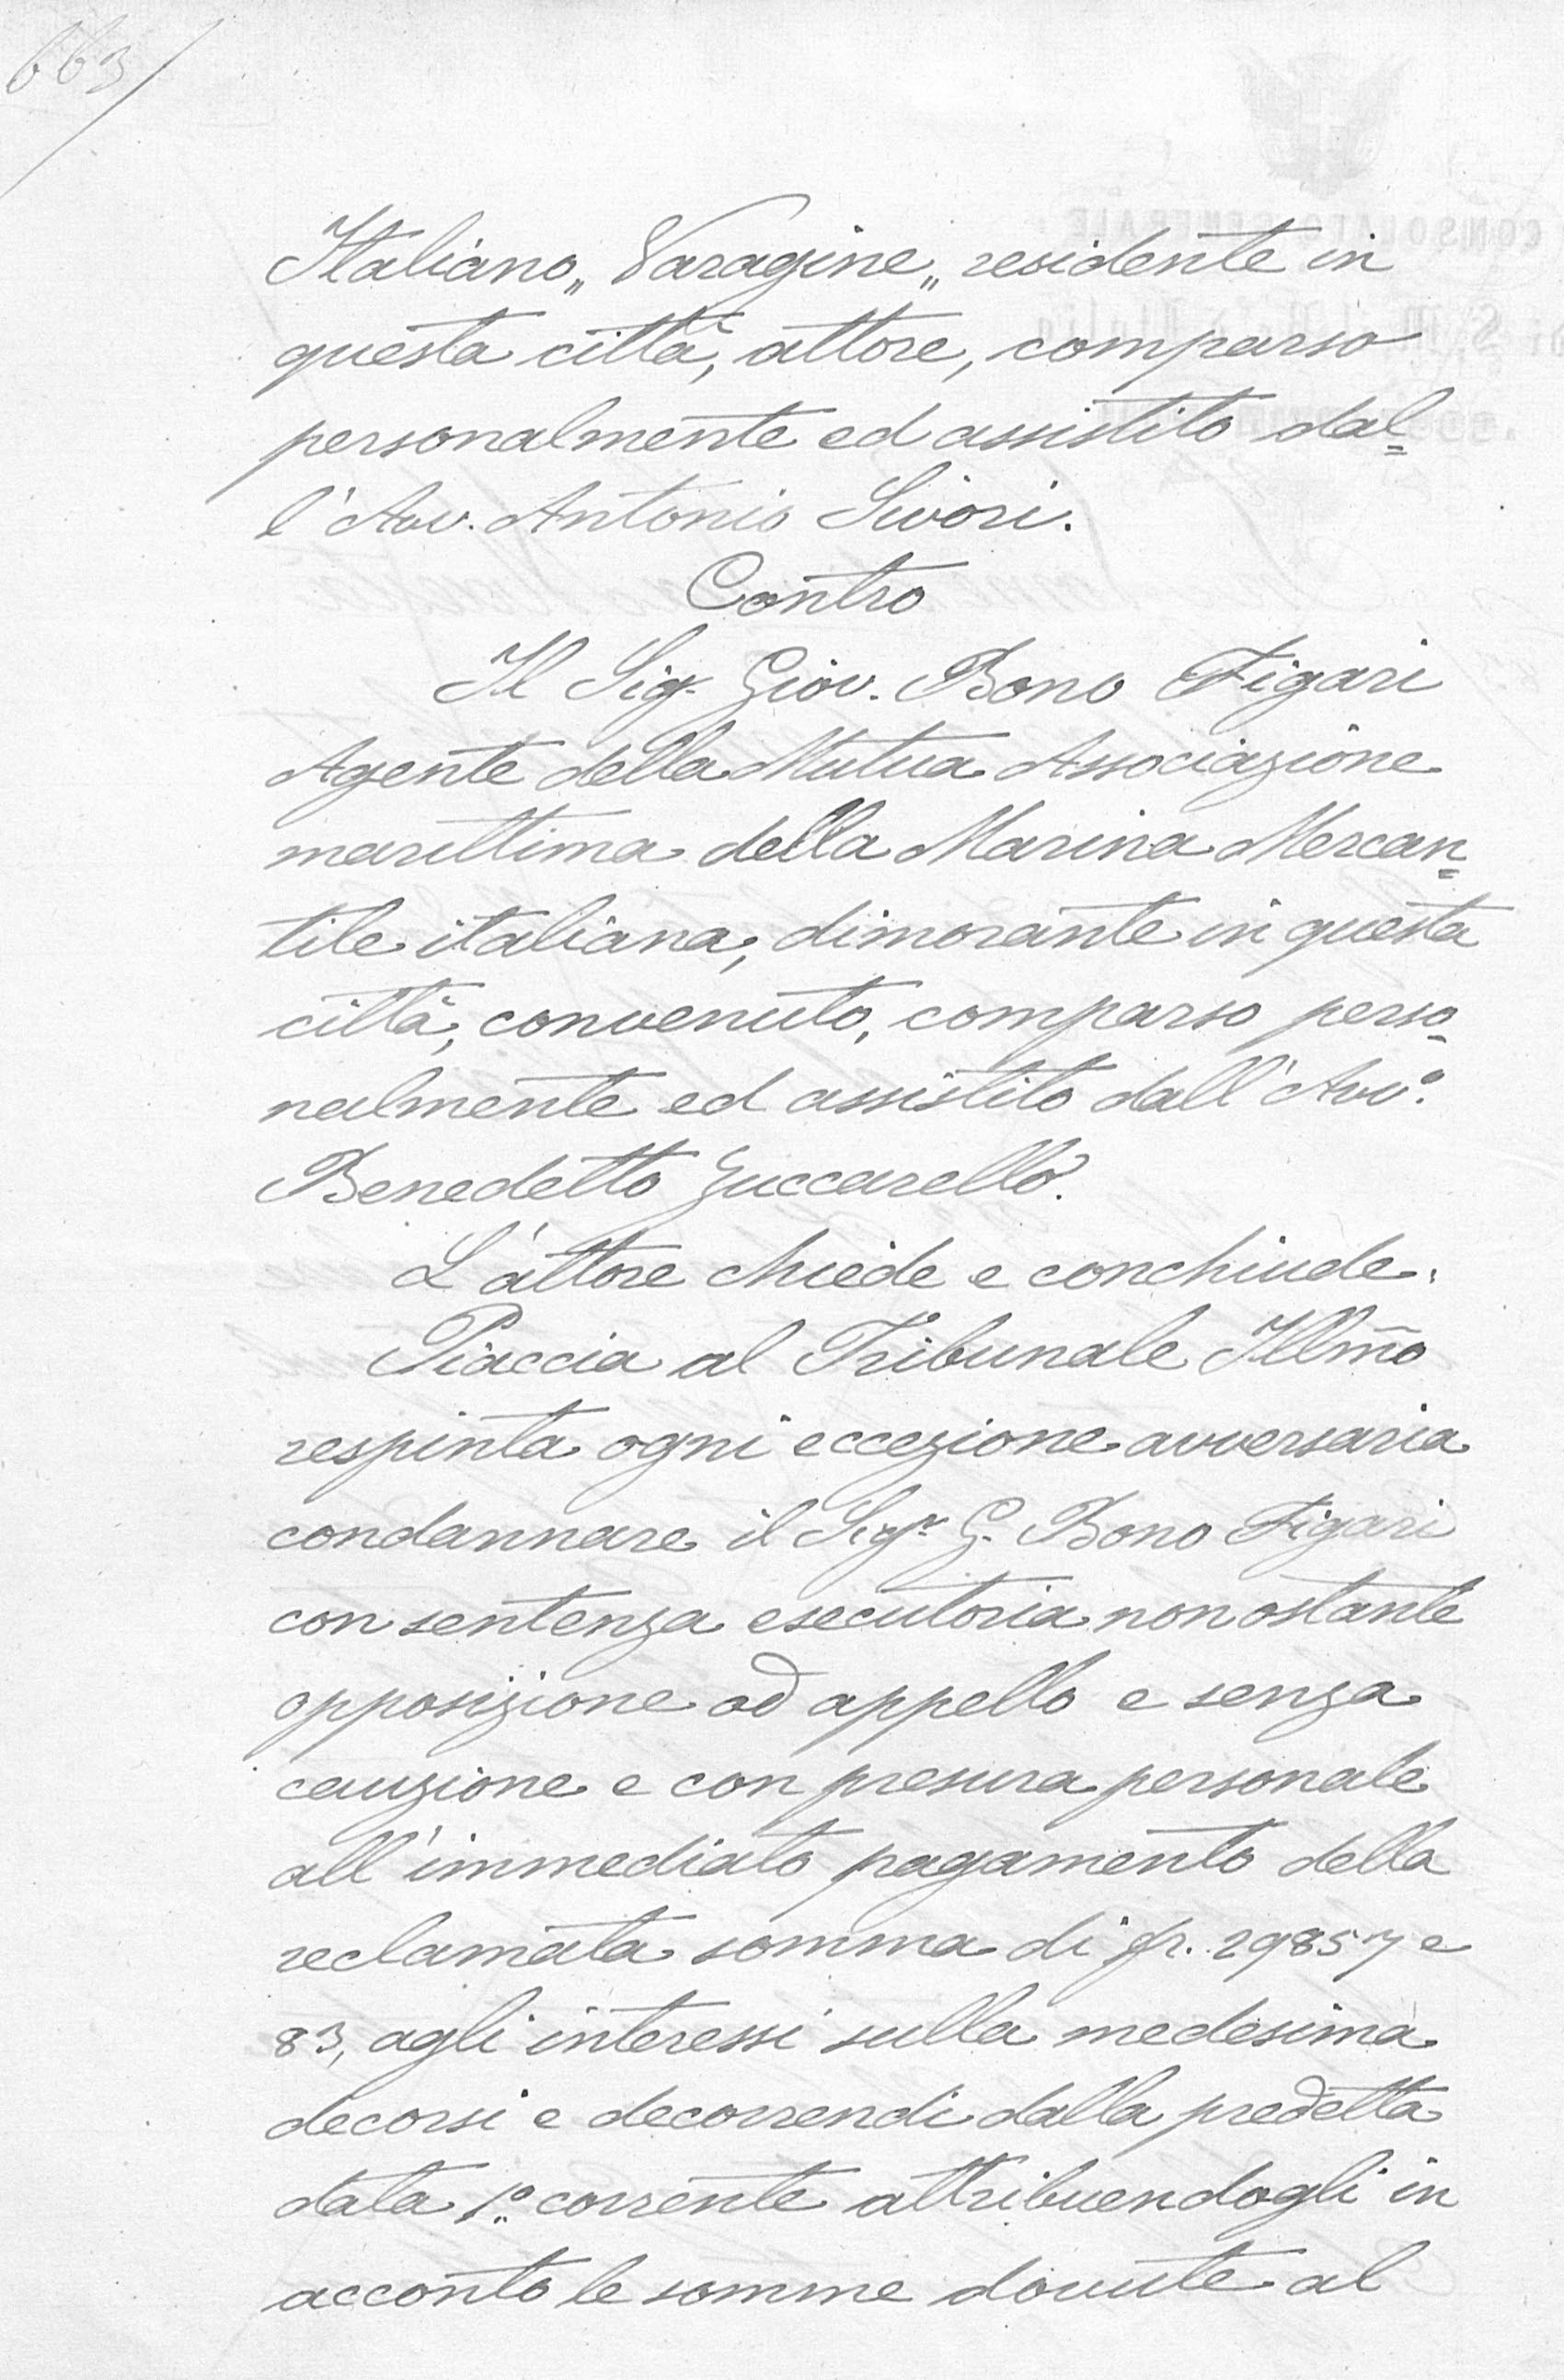 663/
Italiano „Varagine„ residente in
questa città, attore, comparso
personalmente ed assistito dal=
l'Avv. Antonio Sivori.
Contro
Il Sigr. Giov. Bono Figari
Agente della Mutua Associazione
marittima della Marina Mercan=
tile italiana, dimorante in questa
città, convenuto, comparso perso=
nalmente ed assistito dall'Avvo.
Benedetto Zuccarello.
L'attore chiede e conchiude.
Piaccia al Tribunale Illmo
respinta ogni eccezione avversaria
condannare il Sigr. G. Bono Figari
con sentenza esecutoria nonostante
opposizione od appello e senza
cauzione e con presura personale
all'immediato pagamento della
reclamata somma di fr. 29857 e
83, agli interessi sulla medesima
decorsi e decorrendi dalla predetta
data 1o. corrente attribuendogli in
acconto le somme dovute al
CONSOLATO GENERALE